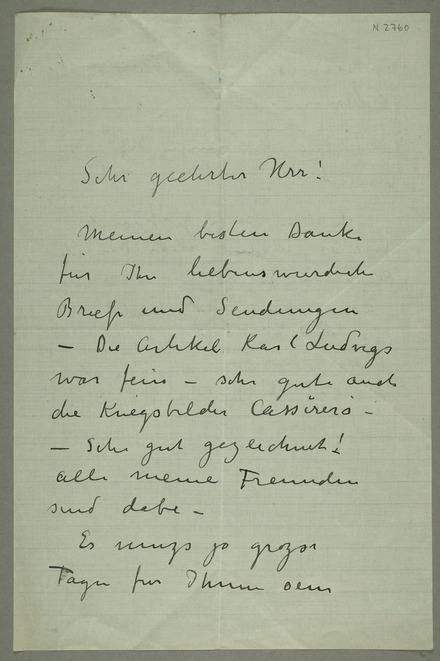 N. 2760
Sehr geehrter Herr!
Meinen besten Dank
für Ihre liebenswürdich
Briefe und Sendungen
– Die Artikel Karl Ludvigs
war fein – sehr gute auch
die Kriegsbilder Cassirers –
– Sehr gut gezeichnet!
alle meine Freunden
sind dabe –
Es mugs jo grozse
Tage fur Ihnen sein